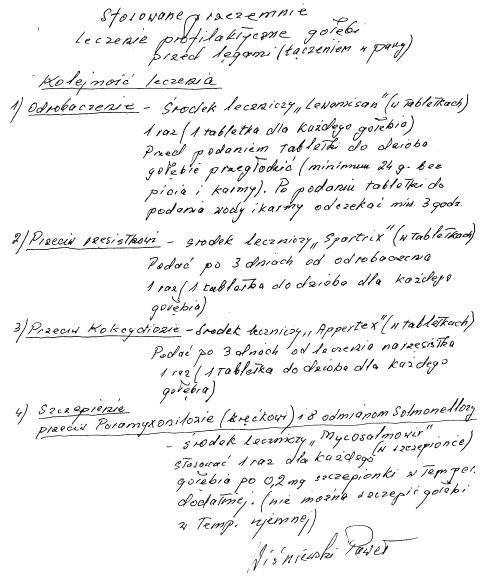 Stosowane przezemnie
leczenie profilaktyczne gołębi
przed lęgami (łączeniem w pary)
Kolejność leczenia
1) Odrobaczenie - Środek leczniczy „Lewamisan" (w tabletkach)
1 raz (1 tabletka dla każdego gołębia)
Przed podaniem tabletki do dzioba
gołębie przegłodzić (minimum 24 g. bez
picia i karmy). Po podaniu tabletki do
podania wody i karmy odczekać min. 3 godz.
2) Przeciw rzęsistkowi - środek leczniczy „Spartrix" (w tabletkach)
Podać po 3 dniach od odrobaczenia
1 raz (1 tabletka do dzioba dla każdego
gołębia)
3) Przeciw Kokcydiozie - Środek leczniczy „Appertex" (w tabletkach)
Podać po 3 dniach od leczenia na rzęsistka
1 raz (1 tabletka do dzioba dla każdego
gołębia)
4) Szczepienie
przeciw Paramyxowirozie (kręćkowi) i 8 odmianom Salmonellozy
- środek leczniczy „Mycosalmovir"
(w szczepionce)
stosować 1 raz dla każdego
gołębia po 0,2 mg szczepionki w temper.
dodatniej. (nie można szczepić gołębi
w temp. ujemnej)
Wiśniewski Paweł